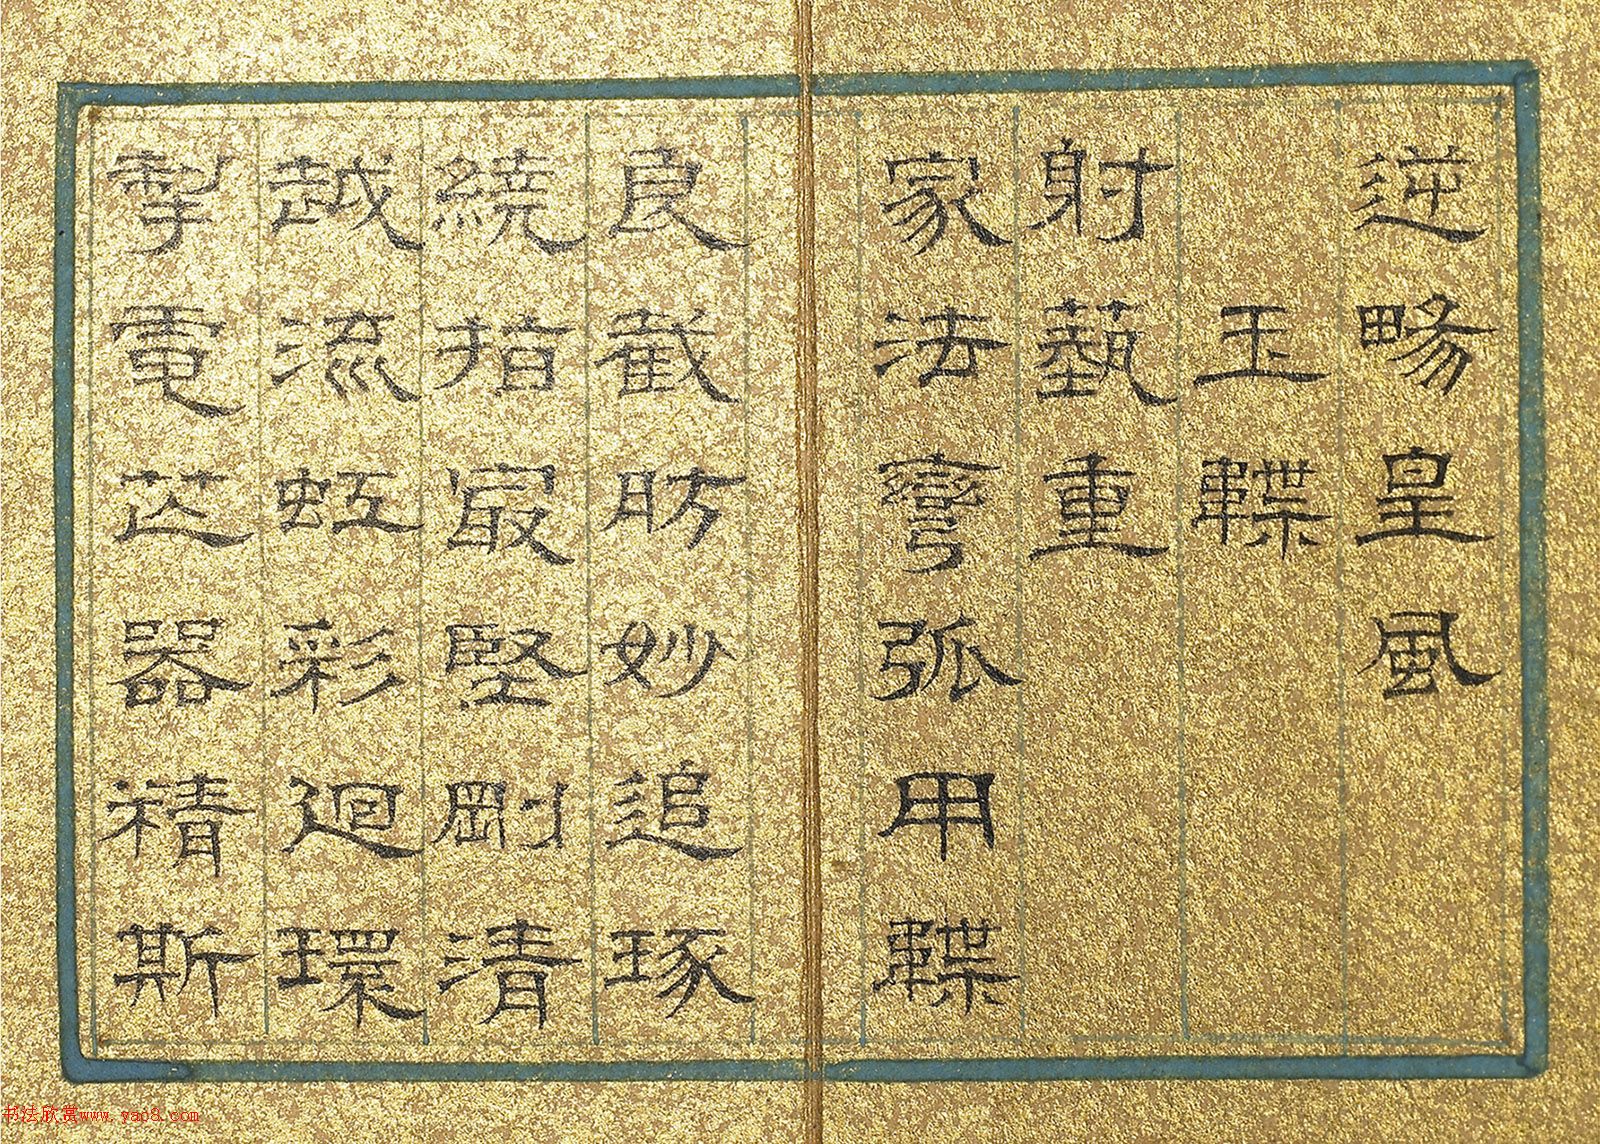 逆暢皇風
玉韘
射藝重
家法彎弧用韘
良截肪妙追琢
繞指㝡堅剛清
越流虹彩迴環
掣電芒器精斯
书法欣赏www.yac8.com